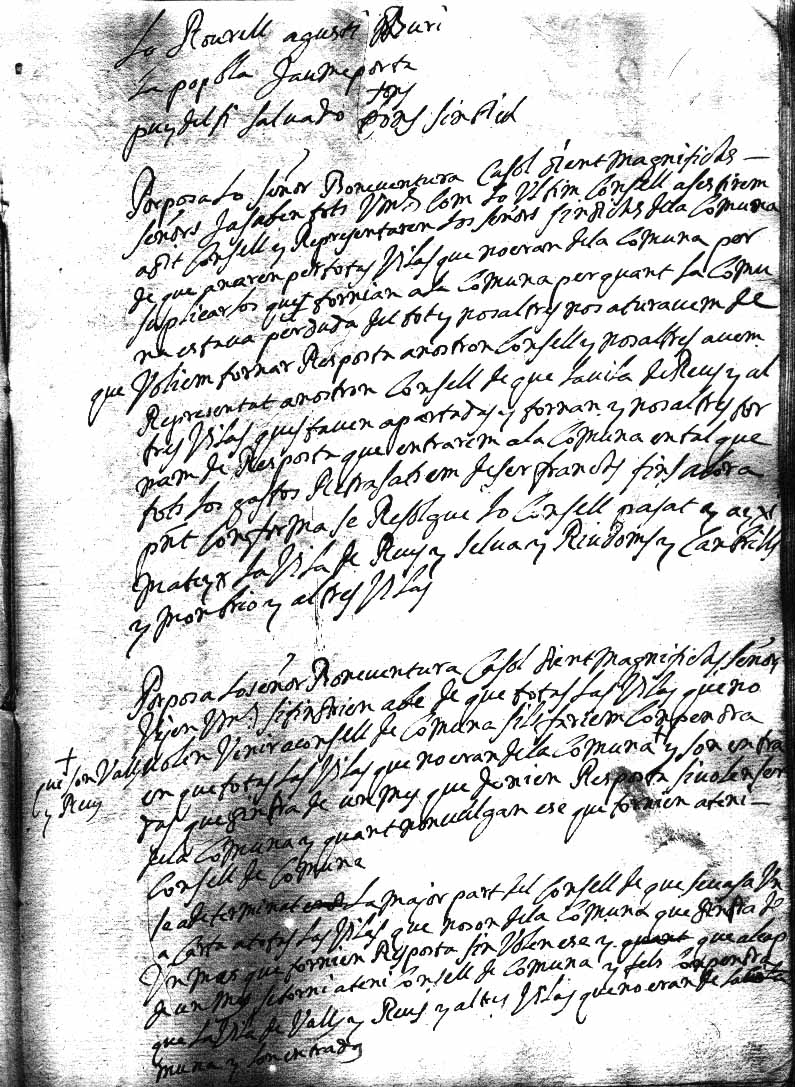 Lo Rourell agusti Buri
La pobla Jaume porta
puydelfi salvado fons sindich
Porposa lo señor Bonaventura Casol dient magnifichs
señors ja saben tots Vms com lo Ultim Consell asestirem
adit Consell y Representaren los señors sindichs dela Comuna
de que anaren per totas Vilas que no eran dela Comuna per
suplicarlos ques fornian ala Comuna per quant la Comu
na estava perduda del tot y nosaltres nos aturavem de
que Voliem fornar Resposta a nostron Consell y nosaltres avem
Representat a nostron Consell de que la vila de Reus y al
tres Vilas ques faven apartadas y fornan y nosaltres for
nam de Resposta que entrarem ala Comuna en tal que
tots los gastos Retrasats em de ser franchs fins ahora
pnt conforma se Resolgue lo Consell pasat y axi
mateyx La Vila de Reus y selva y Riudoms y Cambrils
y monbrio y altres Vilas
Porposa lo señor Bonaventura Casol dient magnifichs señors
Vejen Vms si tindrien abe de que totas las Vilas que no
volen Venir a consell de Comuna sils fariem Conpendra
en que totas las Vilas que no eran dela Comuna y son entra
das que dintra de un mes que donien Resposta si volen ser
dela Comuna y quant no nvulgan ese que fornien a teni
Consell de Comuna
+
que son Valls
y Reus
se a determinat La major part del Consell de que se fasa Un
a Carta a totas las Vilas que no son dela Comuna que dintra de
Un mes que fornien Resposta sin Volen ese y que al cap
de un mes se torni a teni Consell de Comuna y fels Conpendra
que la Vila de Valls y Reus y altres Vilas que no eran de la Co
muna y son entrades